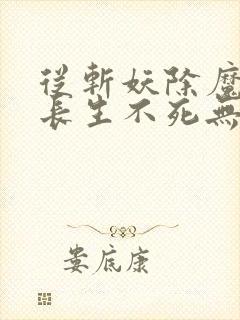 從斬妖除魔
長生不死無
娄底康